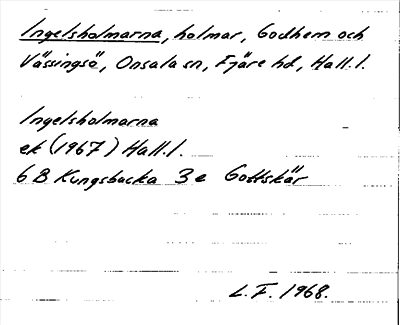 Ingelsholmarna, holmar, Godhem och
Vässingsö, Onsala sn, Fjäre hd, Hall. l.
Ingelsholmarna
ek (1967) Hall. l.
6B Kungsbacka 3e Gottskär
L.F. 1968.